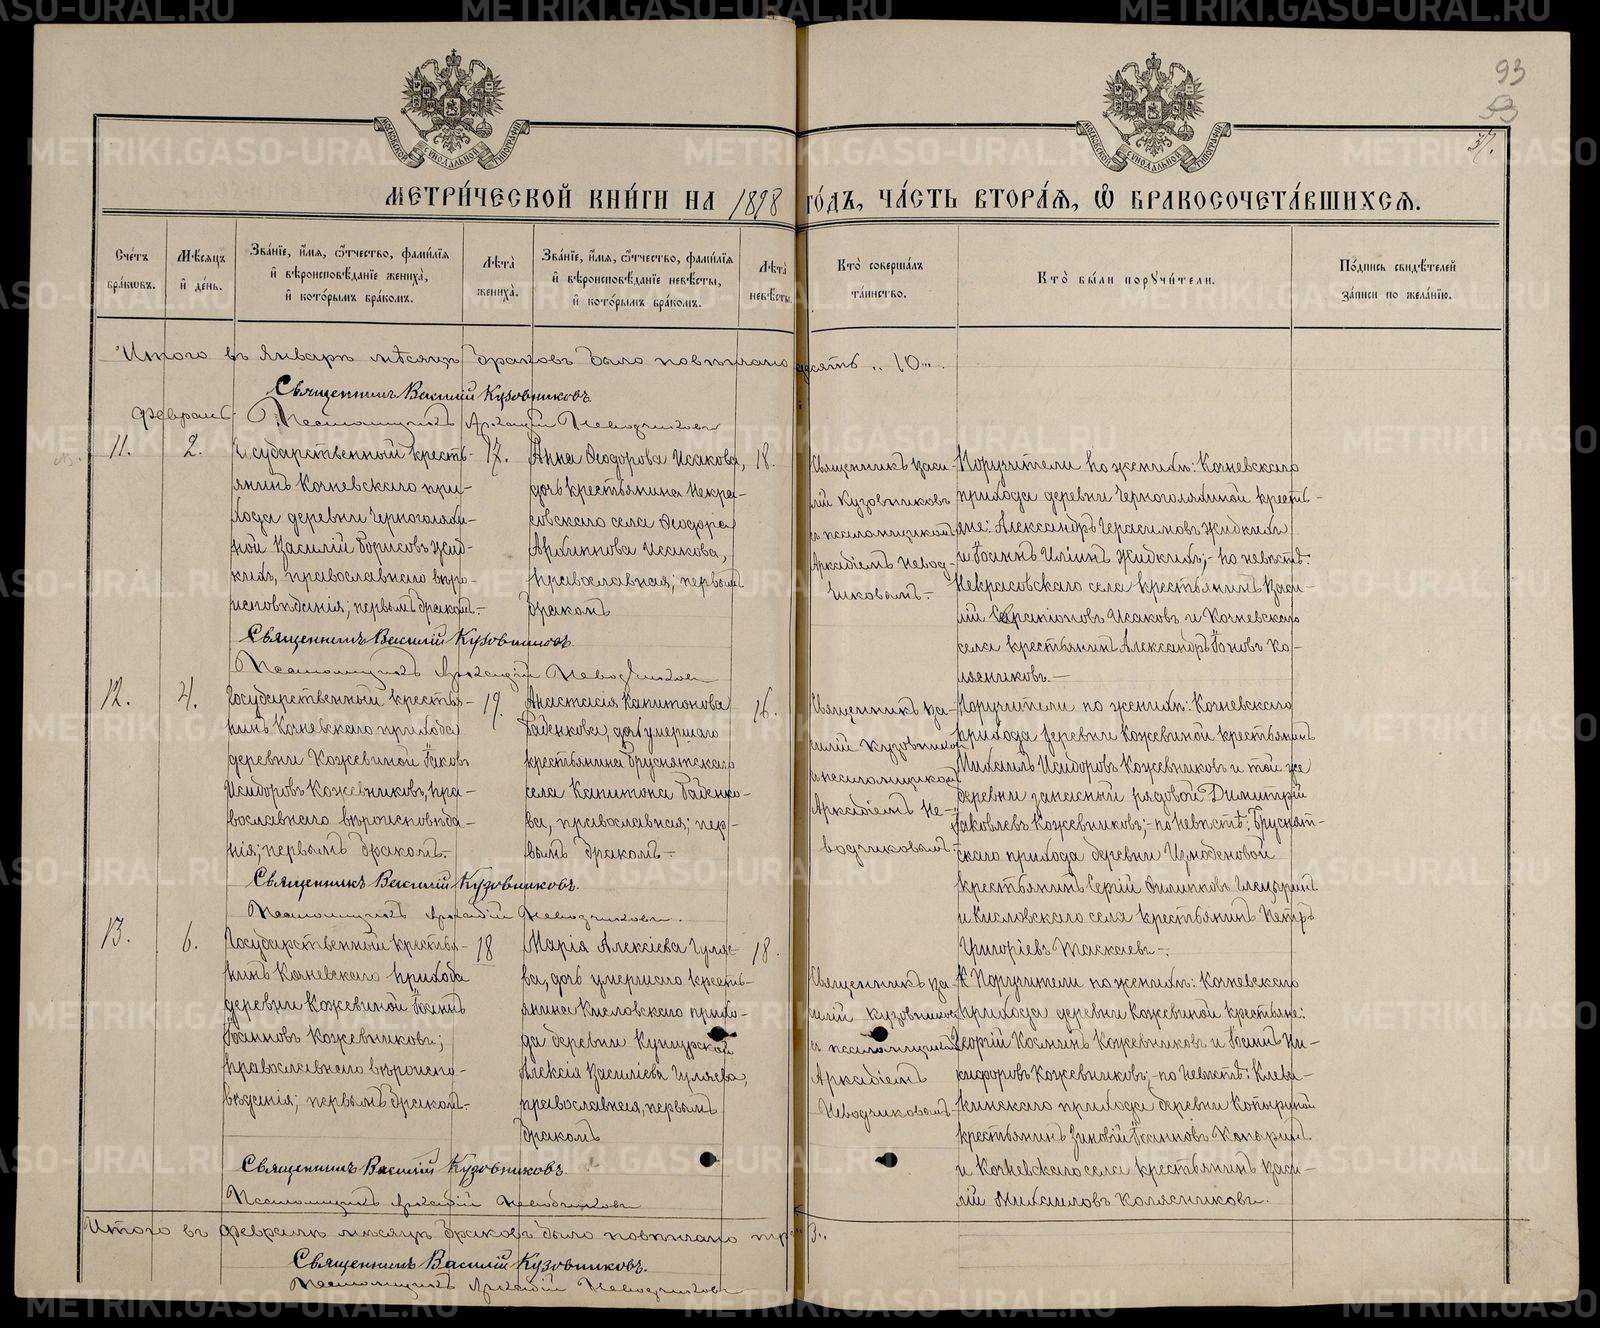 93
53
37.
МЕТРИ́ЧЕСКОЙ КНИ́ГИ НА 1898 ГО́ДЪ, ЧА́СТЬ ВТОРА́Я, Ѡ БРАКОСОЧЕТА́ВШИХСЯ.
Сче́тъ бра́кѡвъ.
Мѣ́сяцъ и де́нь.
Зва́нїе, и́мя, ѻ́тчество, фами́лїя и вѣроисповѣ́данїе жениха̀, и кото́рымъ бра́комъ.
Лѣта̀ жениха̀.
Зва́нїе, и́мя, ѻ́тчество, фами́лїя и вѣроисповѣ́данїе невѣ́сты, и кото́рымъ бра́комъ.
Лѣта̀ невѣ́сты.
Кто̀ соверша́лъ та́инство.
Кто̀ бы́ли поручи́тели.
По́дпись свидѣ́телей за́писи по жела́нїю.
Итого въ Январѣ мѣсяцѣ браковъ было повѣнчано десять „10„.
Священникъ Василій Кузовниковъ
Февраль
Псаломщикъ Аркадій Неводчиковъ
11.
2.
Государственный кресть-
янинъ Кочневскаго при-
хода деревни Черноголяши-
ной Василій Борисовъ Жид-
кихъ, православнаго вѣро-
исповѣданія; первымъ бракомъ.-
17.
Анна Ѳеодорова Исакова,
дочь крестьянина Некра-
совскаго села Ѳеодора
Архиппова Исакова,
православная; первымъ
бракомъ
18.
Священникъ Васи-
лій Кузовниковъ
съ псаломщикомъ
Аркадіемъ Невод-
чиковымъ.-
Поручители по женихѣ: Кочневскаго
прихода деревни Черноголяшиной кресть-
яне: Александръ Герасимовъ Жидкихъ
и Іоаннъ Илiинъ Жидкихъ;- по невѣстѣ:
Некрасовскаго села крестьянинъ Васи-
лій Серапіоновъ Исаковъ и Кочневскаго
села крестьянинъ Александръ Іоновъ Ко-
лясниковъ.-
Священникъ Василій Кузовниковъ.
Псаломщикъ Аркадій Неводчиковъ
12.
4.
Государственный крестья-
нинъ Кочневскаго прихода
деревни Кожевиной Іаковъ
Исидоровъ Кожевниковъ, пра-
вославнаго вѣроисповѣда-
нія; первымъ бракомъ.-
19.
Анастасія Капитонова
Баденкова, дочь умершаго
крестьянина Бруснятскаго
села Капитона Баденко-
ва, православная; пер-
вымъ бракомъ.-
16.
Священникъ Ва-
силій Кузовниковъ
съ псаломщикомъ
Аркадіемъ Не-
водчиковымъ.-
Поручители по женихѣ: Кочневскаго
прихода деревни Кожевиной крестьянинъ
Михаилъ Исидоровъ Кожевниковъ и той же
деревни запасный рядовой Димитрій
Іаковлевъ Кожевниковъ;- по невѣстѣ: Бруснят-
скаго прихода деревни Измоденовой
крестьянинъ Сергій Филипповъ
и Кисловскаго села крестьянинъ Петръ
Григоріевъ Таскаевъ.-
Священникъ Василій Кузовниковъ.
Псаломщикъ Аркадій Неводчиковъ.
13.
6.
Государственный крестья-
нинъ Кочневскаго прихода
деревни Кожевиной Іоаннъ
Іоанновъ Кожевниковъ;
православнаго вѣроиспо-
вѣданія; первымъ бракомъ.
18
Марія Алексіева Гуляе-
ва, дочь умершаго кресть-
янина Кисловскаго прихо-
да деревни Кунгурской
Алексія Василіева Гуляева,
православная, первымъ
бракомъ
18.
Священникъ Ва-
силій Кузовниковъ
съ псаломщикомъ
Аркадіемъ
Неводчиковымъ
Поручители по женихѣ: Кочневскаго
прихода деревни Кожевиной крестьяне:
Георгій Косминъ Кожевниковъ и Іоаннъ Ни-
кифоровъ Кожевниковъ;- по невѣстѣ: Клева-
кинскаго прихода деревни Копыриной
крестьянинъ Зиновій Іоанновъ
и Кочневскаго села крестьянинъ Васи-
лій Михаиловъ Колясниковъ.
Священникъ Василій Кузовниковъ
Псаломщикъ Аркадій Неводчиковъ
Итого въ Февралѣ мѣсяцѣ браковъ было повѣнчано три „3„.
Священникъ Василій Кузовниковъ.
Псаломщикъ Аркадій Неводчиковъ
METRIKI.GASO-URAL.RU